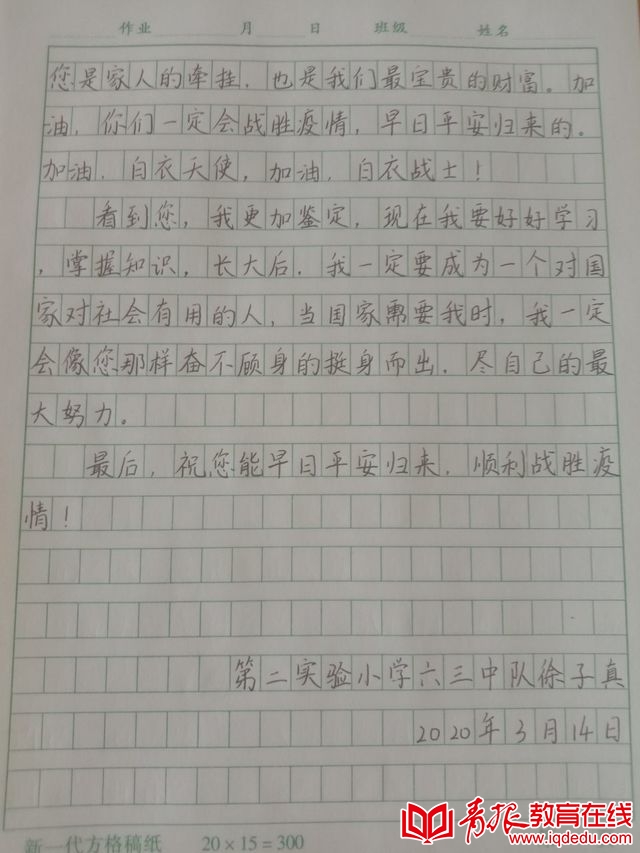 作业 月 日 班级 姓名
您是家人的牵挂，也是我们最宝贵的财富。加
油，你们一定会战胜疫情，早日平安归来的。
加油，白衣天使，加油，白衣战士！
看到您，我更加鉴定，现在我要好好学习
，掌握知识，长大后，我一定要成为一个对国
家对社会有用的人，当国家需要我时，我一定
会像您那样奋不顾身的挺身而出，尽自己的最
大努力。
最后，祝您能早日平安归来，顺利战胜疫
情！
第二实验小学六三中队徐子真
2020年3月14日
新一代方格稿纸 20×15=300
青报教育在线
www.iqdedu.com